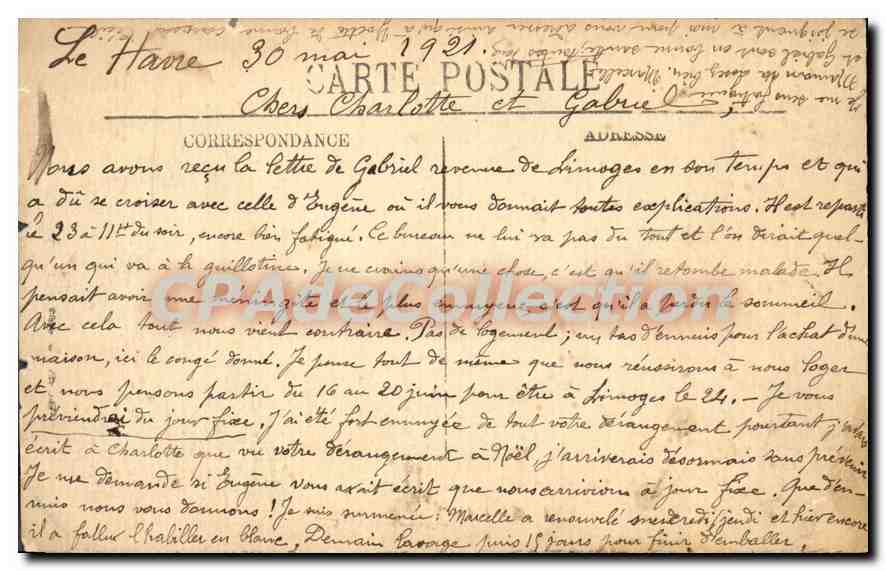 Le Havre 30 mai 1921.
CARTE POSTALE
Chers Charlotte et Gabriel,
CORRESPONDANCE
ADRESSE
Nous avons reçu la lettre de Gabriel revenue de Limoges en son temps et qui
a dû se croiser avec celle d'Eugène où il vous donnait toutes explications. Il est reparti
le 23 à 11h du soir, encore bien fatigué. Ce bureau ne lui va pas du tout et l'on dirait quel-
qu'un qui va à la guillotine. Je ne crains qu'une chose, c'est qu'il retombe malade. Il
pensait avoir une méningite et le plus ennuyeux c'est qu'il a perdu le sommeil.
Avec cela tout nous vient contraire. Pas de logement ; un tas d'ennuis pour l'achat d'une
maison, ici le congé donné. Je pense tout de même que nous réussirons à nous loger
et nous pensons partir du 16 au 20 juin pour être à Limoges le 24. - Je vous
préviendrai du jour fixe. J'ai été fort ennuyée de tout votre dérangement pourtant j'avais
écrit à Charlotte que vu votre dérangement à Noël, j'arriverais désormais sans prévenir
Je me demande si Eugène vous avait écrit que nous arrivions à jour fixe. Que d'en-
nuis nous vous donnons ! Je suis surmenée : Marcelle a renouvelé jeudi et hier encore
il a fallu l'habiller en blanc, Demain lavage puis 15 jours pour finir d'emballer,
Je me sens fatiguée
Maman va assez bien, Marcelle
et Gabriel sont en bonne santé, toutes
se joignent à moi pour vous adresser ainsi qu'à de bonnes caresses
CPAdeCollection